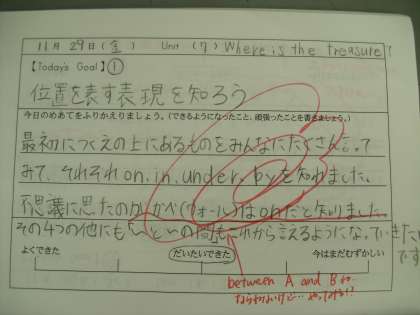 11月29日(金) Unit (7) Where is the treasure?
【Today's Goal】①
位置を表す表現を知ろう
今日のめあてをふりかえりましょう。(できるようになったこと、頑張ったことを書きましょう。)
最初につくえの上にあるものをみんなにたくさん言って
みて、それぞれon, in, under, byを知れました。
不思議に思ったのが、かべ(ウォール)はonだと知りました。
その4つの他にも「〜と〜の間」もこれから言えるようになっていきたい
です
よくできた だいたいできた 今はまだむずかしい
between A and B は
ならわないけど…やってみる!!